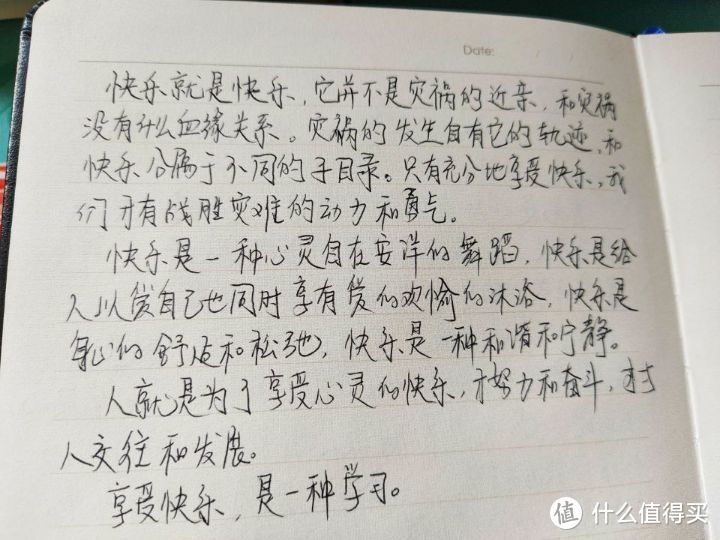 Date:
快乐就是快乐，它并不是灾祸的近亲，和灾祸
没有什么血缘关系。灾祸的发生自有它的轨迹，和
快乐分属于不同的子目录。只有充分地享受快乐，我
们才有战胜灾难的动力和勇气。
快乐是一种心灵自在安详的舞蹈，快乐是给
人以爱自己也同时享有爱的欢愉的沐浴，快乐是
身心的舒适和松弛，快乐是一种和谐和宁静。
人就是为了享受心灵的快乐，才努力和奋斗，才与
人交往和发展。
享受快乐，是一种学习。
值 什么值得买